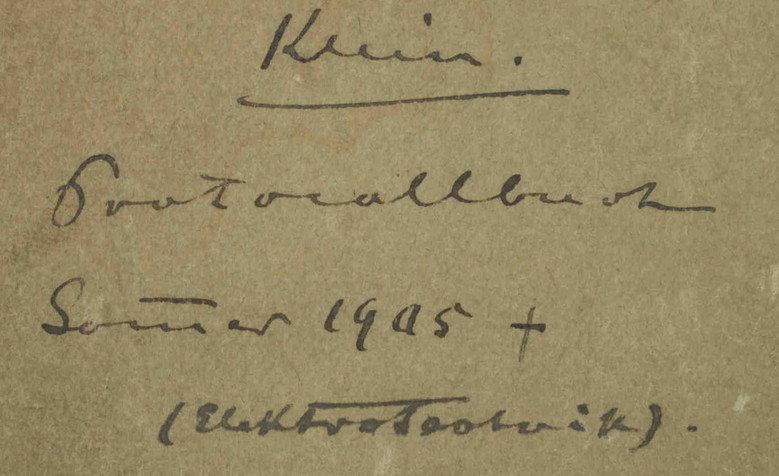 Klein.
Protocollbuch
Som̅er 1905 +
(Elektrotechnik).